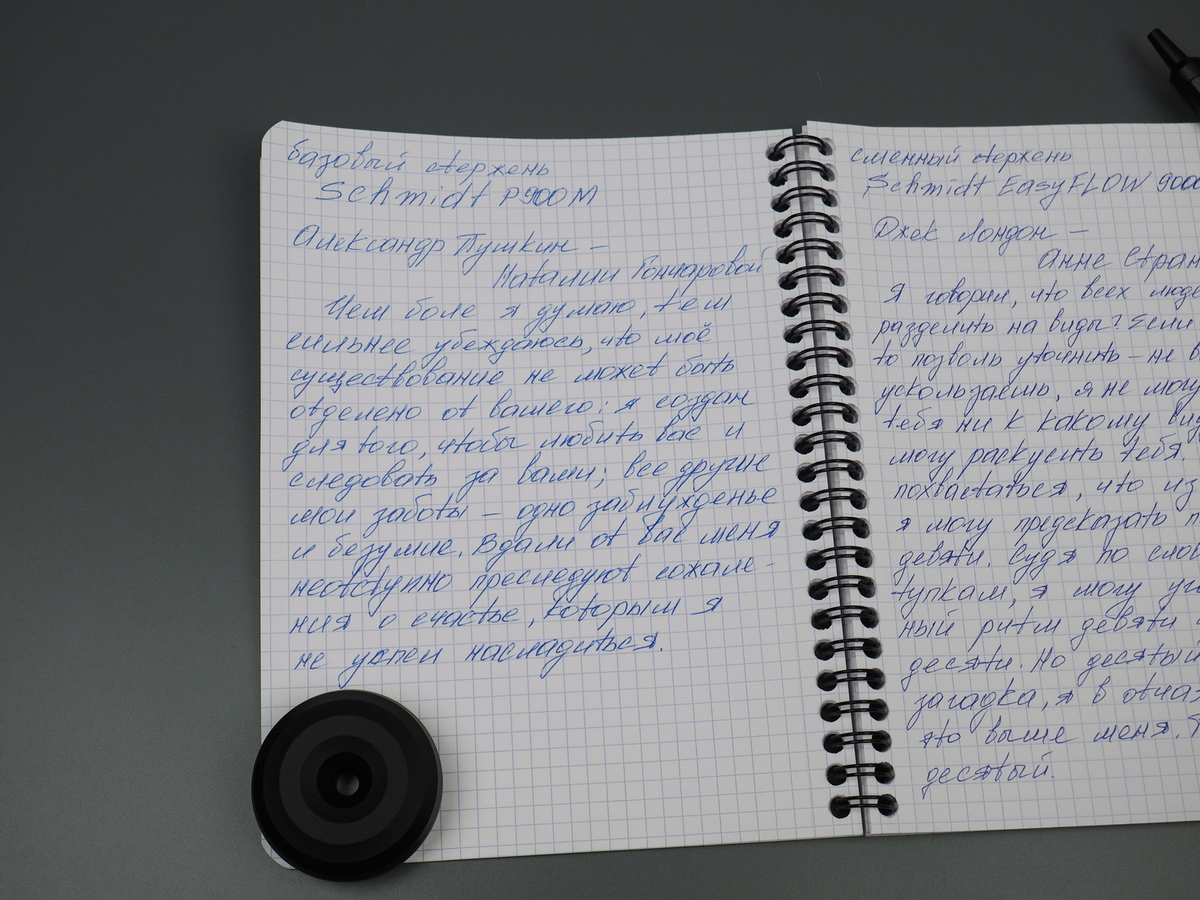 базовый стержень
Schmidt P900M
Александр Пушкин –
Наталии Гончаровой
Чем боле я думаю, тем
сильнее убеждаюсь, что моё
существование не может быть
отделено от вашего: я создан
для того, чтобы любить вас и
следовать за вами; все другие
мои заботы – одно заблужденье
и безумие. Вдали от вас меня
неотступно преследуют сожале-
ния о счастье, которым я
не успел насладиться.
сменный стержень
Schmidt EasyFLOW 9000
Джек Лондон –
Анне Стран
Я говорил, что всех люде
разделить на виды? Если
то позволь уточнить – не в
ускользаешь, я не могу
тебя ни к какому вид
могу раскусить тебя.
похвастаться, что из
я могу предсказать п
девяти. Судя по сло
тупкам, я могу уг
ный ритм девяти ч
десяти. Но десятый
загадка, я в отча
это выше меня. Т
десятый.